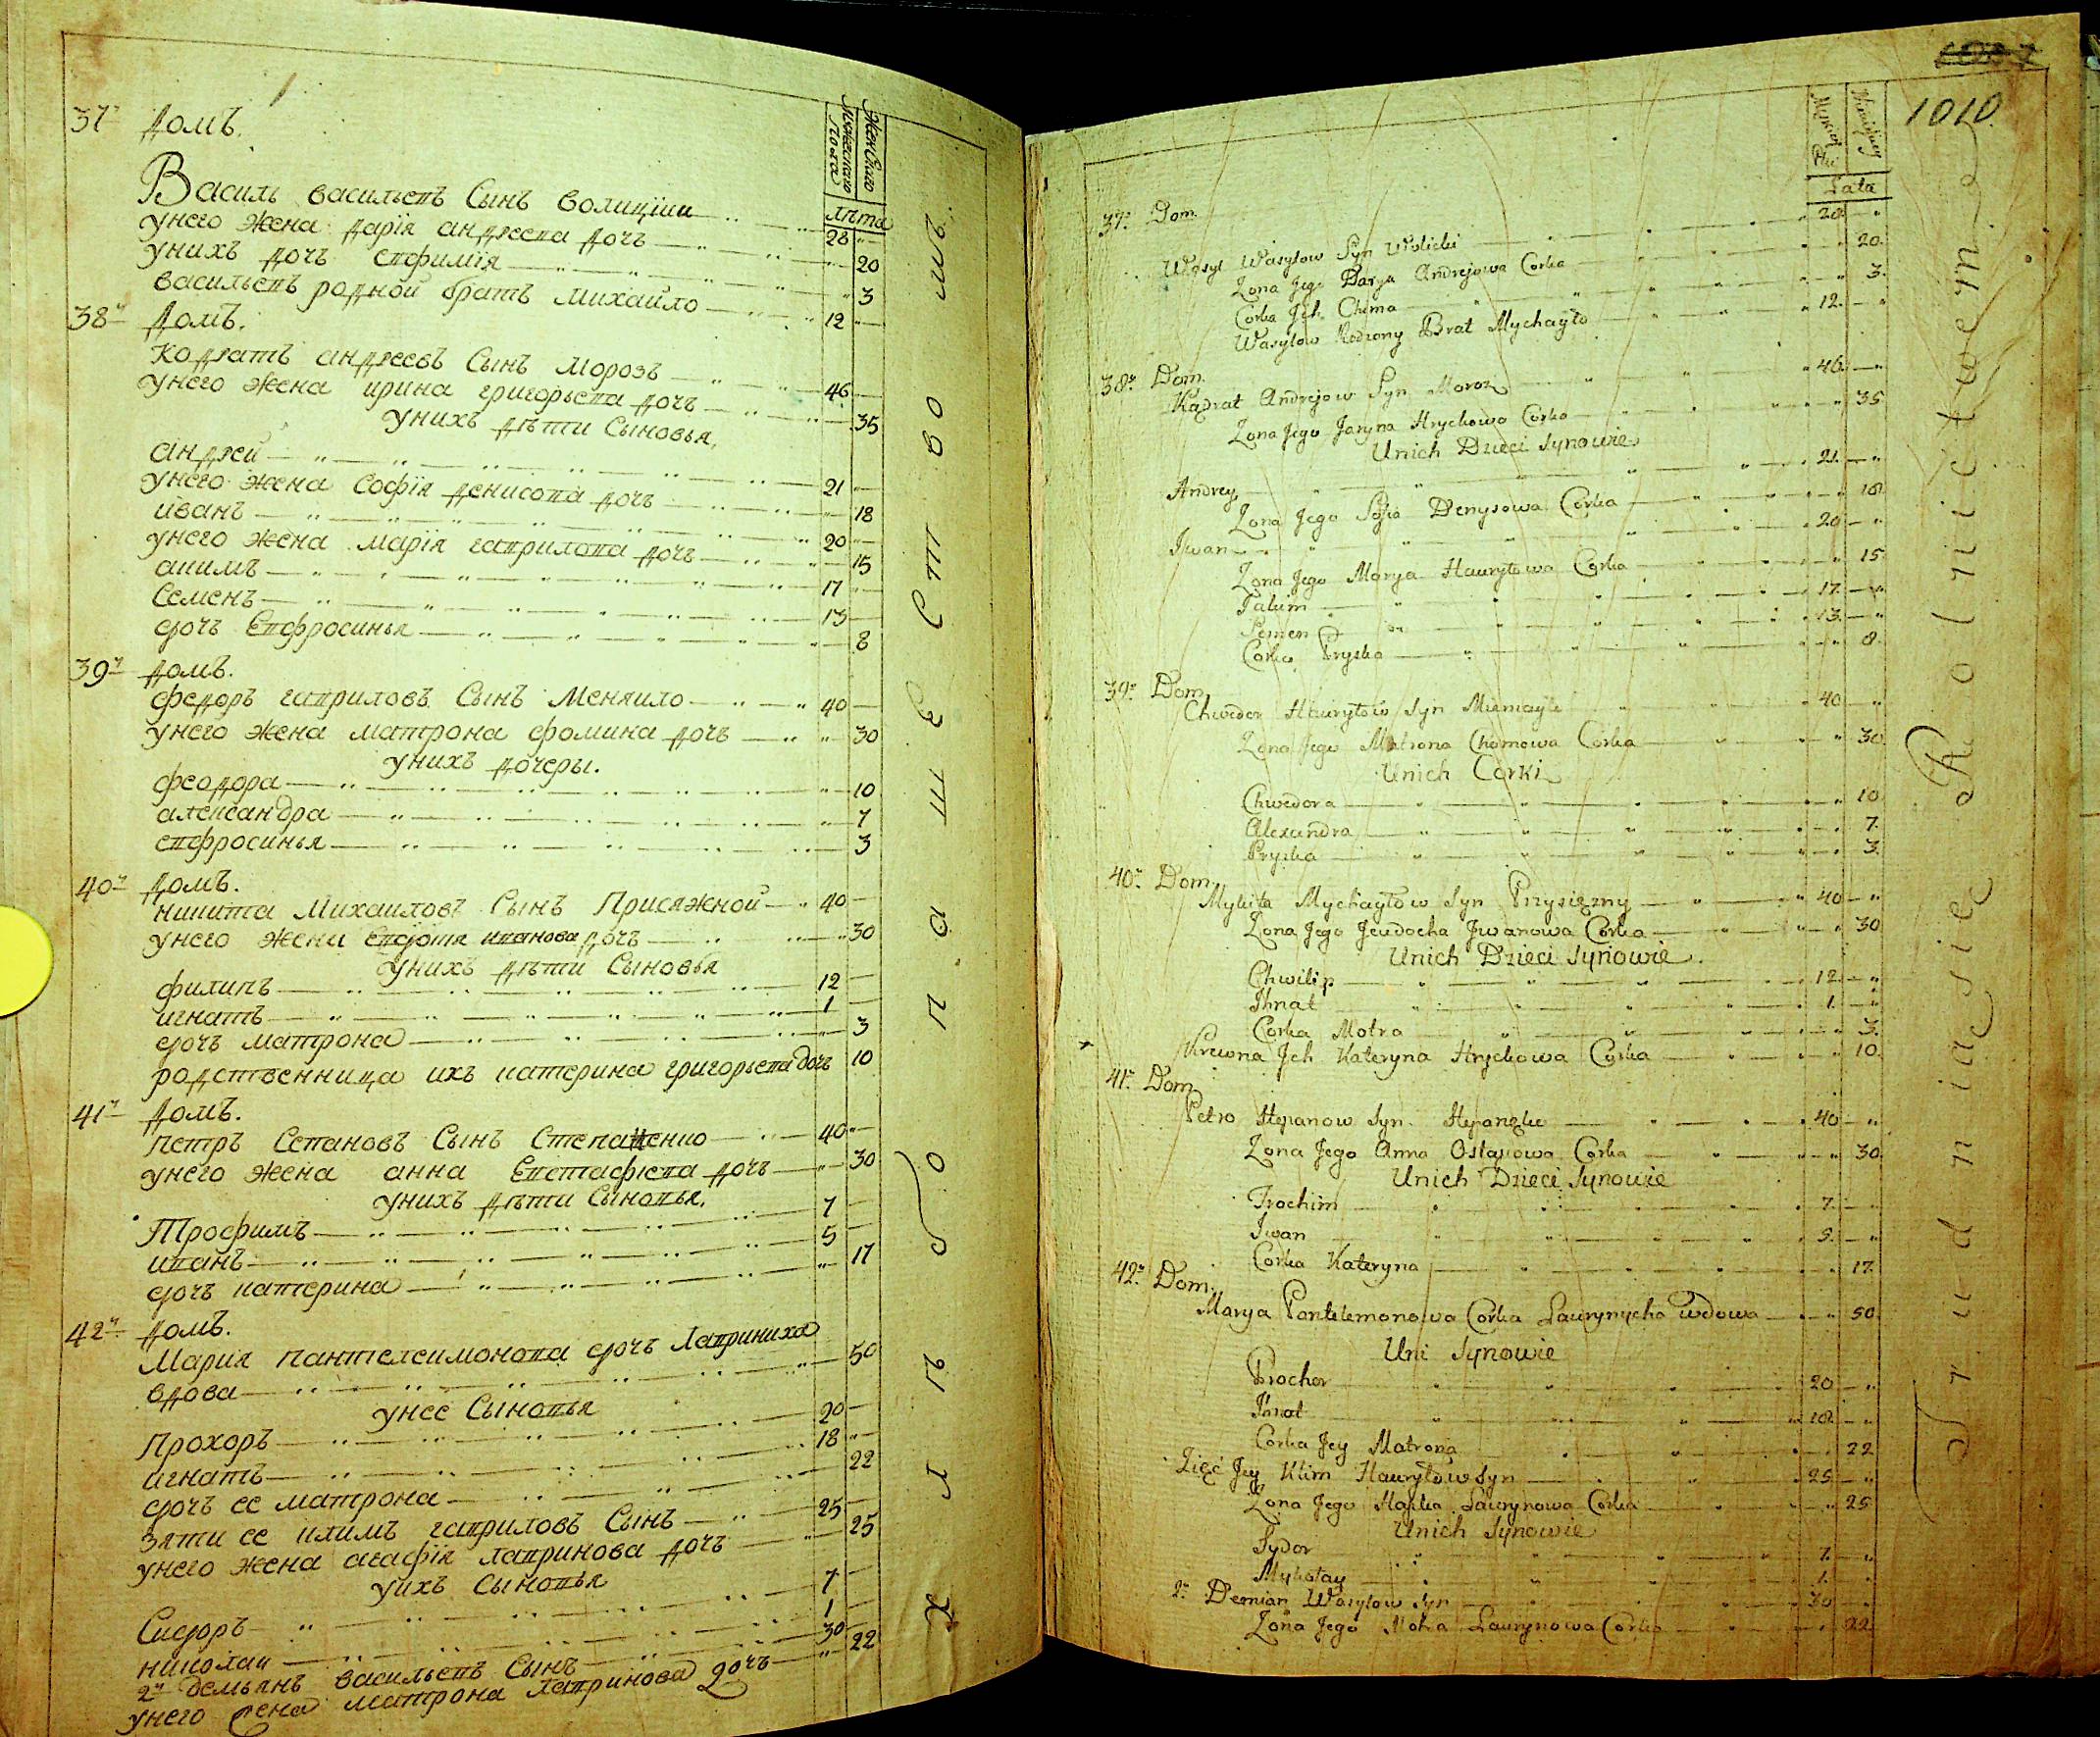 37й Домъ.
Женскаго
Мужескаго пола
лѣта
Василь васильевъ Сынъ волицкии 28
унего жена дарїя андреева дочь 20
унихъ дочь евфимїя 3
васильевъ родной братъ михайло 12
38й Домъ.
Кодратъ андреевъ Сынъ морозъ 46
унего жена ирина григорьева дочь 35
унихъ дѣти Сыновья.
андреи 21
унего жена Софїя денисова дочь 18
иванъ 20
унего жена марїя гаврилова дочь 15
акимъ 17
Семенъ 13
дочь Евфросинья 8
39й Домъ.
федоръ гавриловъ Сынъ Меняило 40
унего жена матрона фомина дочь 30
унихъ дочеры.
феодора 10
александра 7
евфросинья 3
40й Домъ.
никита Михаиловъ Сынъ Присяжной 40
унего жена Евдокия иванова дочь 30
унихъ дѣти Сыновья
филипъ 12
игнатъ 1
дочь матрона 3
родственница ихъ катерина григорьева дочь 10
41й Домъ.
петръ Степановъ Сынъ Степаненко 40
унего жена анна Евстафиева дочь 30
унихъ дѣти Сыновья.
Трофимъ 7
иванъ 5
дочь катерина 17
42й Домъ.
Мария пантелеимонова дочь Лавриниха
вдова 50
унее Сыновья
прохоръ 20
игнатъ 18
дочь ее матрона 22
зяти ее климъ гавриловъ Сынъ 25
унего жена агафїя лавринова дочь 25
уихъ Сыновья
Сидоръ 7
николаи 1
2й демьянъ васильевъ Сынъ 30
унего жена матрона лавринова дочь 22
1010
Lata
37o Dom
Wasyl Wasylow Syn Wolicki 28
Zona Jego Darya Andrejowa Corka 20
Corka Jch Chima 3
Wasylow Rodzony Brat Mychayło 12
38o Dom
Kądrat Andrejow Syn Moroz 46
Zona Jego Jaryna Hryckowa Corka 35
Unich Dzieci Synowie
Andrey 21
Zona Jego Sofia Denysowa Corka 18
Jwan 20
Zona Jego Marya Hawryłowa Corka 15
Jakim 17
Semen 13
Corka Pryska 8
39o Dom
Chwedor Hawryłow Syn Mieniayło 40
Zona Jego Matrona Chomowa Corka 30
Unich Corki
Chwedora 10
Alexandra 7
Pryska 3
40o Dom
Mykita Mychayłow Syn Przysięzny 40
Zona Jego Jewdocha Jwanowa Corka 30
Unich Dzieci Synowie
Chwilip 12
Jhnat 1
Corka Motra 3
Krewna Jch Kateryna Hryckowa Corka 10
41o Dom
Petro Stepanow Syn Stepanenko 40
Zona Jego Anna Ostapowa Corka 30
Unich Dzieci Synowie
Trochim 7
Jwan 5
Corka Kateryna 17
42o Dom
Marya Pantelemonowa Corka Lawrynycha Wdowa 50
Uni Synowie
Prochor 20
Jhnat 18
Corka Jey Matrona 22
Zięć Jey Klim Hawryłow Syn 25
Zona Jego Hapka Lawrynowa Corka 25
Unich Synowie
Sydor 7
Mykołay 1
2o Demian Wasylow Syn 30
Zona Jego Motra Lawrynowa Corka 22